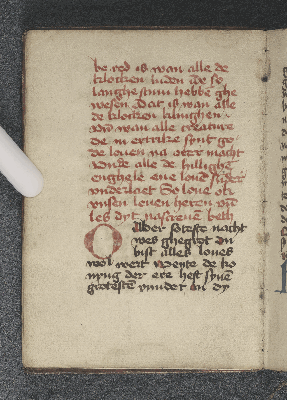 be red is wan alle de
klocken luden de so
langhe stum hebbe ghe
wesen Dat is wan alle
de klocken klinghen
vnde wan alle creature
de in ertrike synt go
de louen na erer macht
vnde alle de hillighe
enghele ene louen
vnderlaet So loue ok
vnsen leuen heren vnde
les dyt nascreuen beth
O Alder soteste nacht
wes ghegrot du
bist alles loues
wol wert wente de ko
nyng der ere heft syne
grotesten wunder in dy